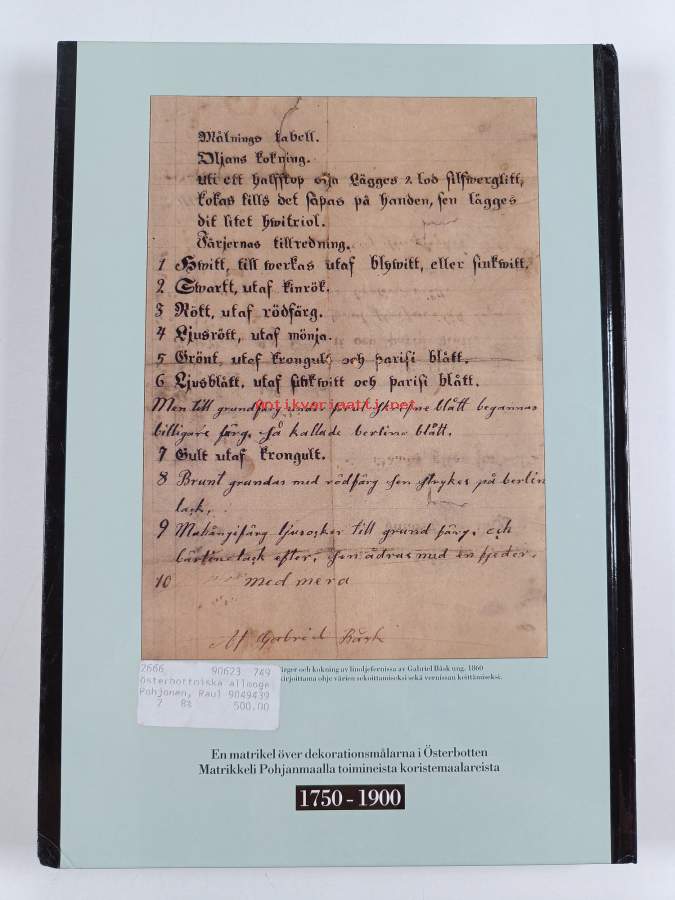 Målnings tabell.
Oljans kokning.
uti ett halfstop olja Lägges 2. lod silfwerglitt,
kokas tills det såpas på handen, sen lägges
dit litet hwitriol.
Färjernas tillredning.
1 Hwitt, till werkas utaf blywitt, eller sinkwitt.
2 Swartt, utaf kinrök.
3 Rött, utaf rödfärg.
4 Ljusrött, utaf mönja.
5 Grönt, utaf krongult och parisi blått.
6 Ljusblått, utaf sinkwitt och parisi blått.
antikvariaatti.net
Men till grundfärg blått begannas
billigare färg. så kallade berline blått.
7 Gult utaf krongult.
8 Brunt grundas med rödfärg sen strykes på berlin
lack.
9 Mahångifärg ljusocker till grund färg. och
bärline lack efter. sen ådras med en fjeder.
10 med mera
Af Gabriel Båsk
ärger och kokning av linoljefernissa av Gabriel Båsk ung. 1860
kirjoittama ohje värien sekoittamiseksi sekä vernissan keittämiseksi.
2666 90623 749
Österbottniska allmoge
Pohjonen, Raul 9049439
7 8% 500.00
En matrikel över dekorationsmålarna i Österbotten
Matrikkeli Pohjanmaalla toimineista koristemaalareista
1750 - 1900